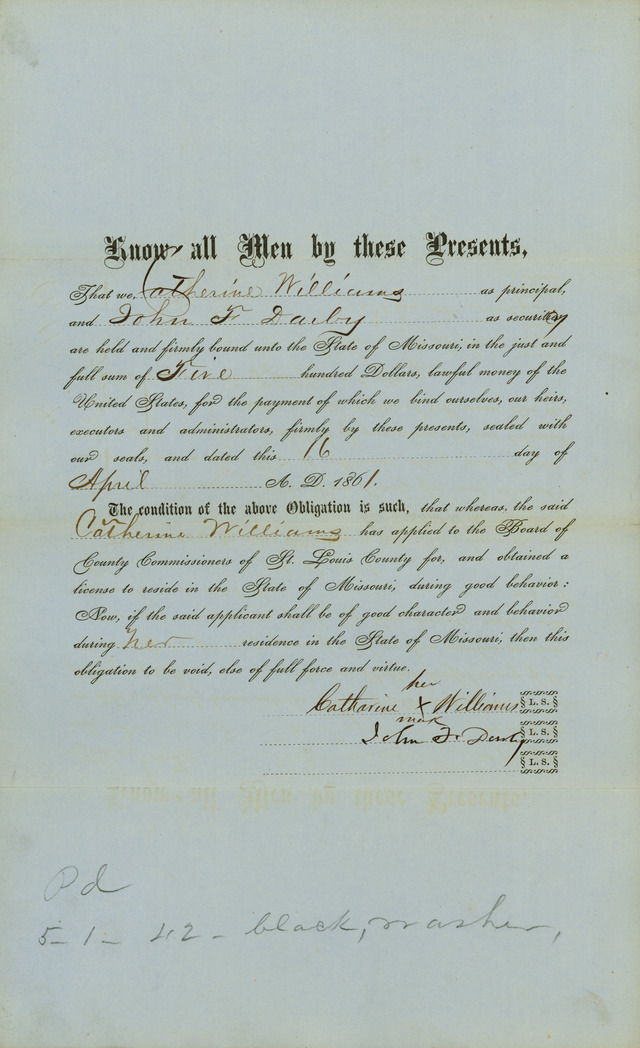 Know all Men by these Presents,
That we, Catherine Williams as principal,
and John F Darby as security
are held and firmly bound unto the State of Missouri, in the just and
full sum of Five hundred Dollars, lawful money of the
United States, for the payment of which we bind ourselves, our heirs,
executors and administrators, firmly by these presents, sealed with
our seals, and dated this 16 day of
April A. D. 1861.
The condition of the above Obligation is such, that whereas, the said
Catherine Williams has applied to the Board of
County Commissioners of St. Louis County for, and obtained a
license to reside in the State of Missouri, during good behavior:
Now, if the said applicant shall be of good character and behavior
during her residence in the State of Missouri, then this
obligation to be void, else of full force and virtue.
her
Catharine X Williams § L. S. §
mark
John F. Darby § L. S. §
§ L. S. §
Know all Men by these Presents,
Pd
5-1-42-black, washer,